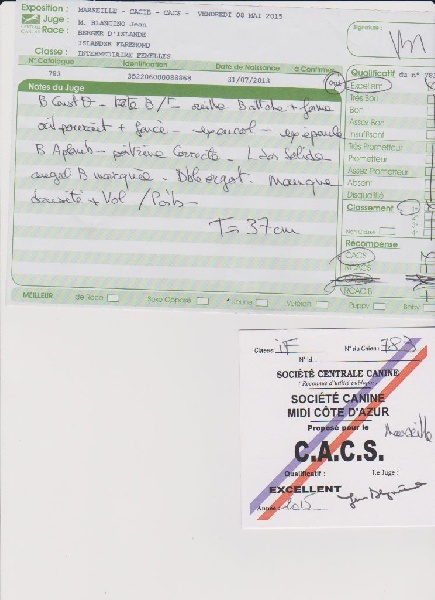 Exposition : MARSEILLE - CACIB - CACS - VENDREDI 08 MAI 2015
Juge : M. Jean
Race : BERGER D'ISLANDE
ISLANDSK FAREHOND
Classe : INTERMEDIAIRE FEMELLES
N° Catalogue Identification Date de Naissance à Confirmer
783 352206000088868 31/07/2013 Oui
Notes du Juge
B - tête B / oreille + forme
+ foncé -
B Aplomb - poitrine Correcte - L dos Solide
angul B marquée - Manque
+ Vol / Poils -
T = 37 cm
Signature :
Qualificatif du n° 783
Excellent
Très Bon
Bon
Assez Bon
Insuffisant
Très Prometteur
Prometteur
Assez Prometteur
Absent
Disqualifié
Classement
Non Classé
Récompense
CACS
RCACS
CACIB
RCACIB
MEILLEUR de Race Sexe Opposé Jeune Vétéran Puppy Baby
Classe : iF N° du Chien : 783
N° Id
SOCIÉTÉ CENTRALE CANINE
(Reconnue d'utilité publique)
SOCIÉTÉ CANINE
MIDI CÔTE D'AZUR
Proposé pour le Marseille
C.A.C.S.
Qualificatif : Le Juge :
EXCELLENT
Année : 2015